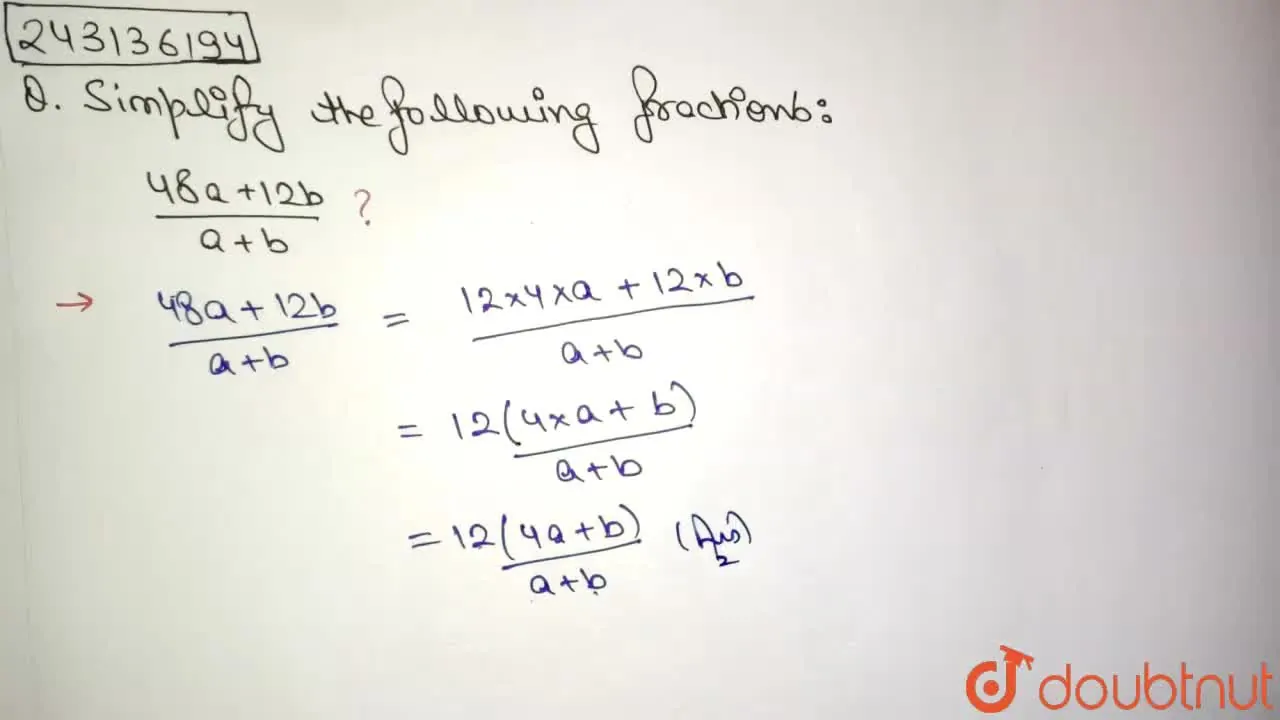 243136194
Q. Simplify the following fractions:
48a+12b / a+b ?
→ 48a+12b / a+b = 12×4×a + 12×b / a+b
= 12(4×a+b) / a+b
= 12(4a+b) / a+b (Ans)
doubtnut